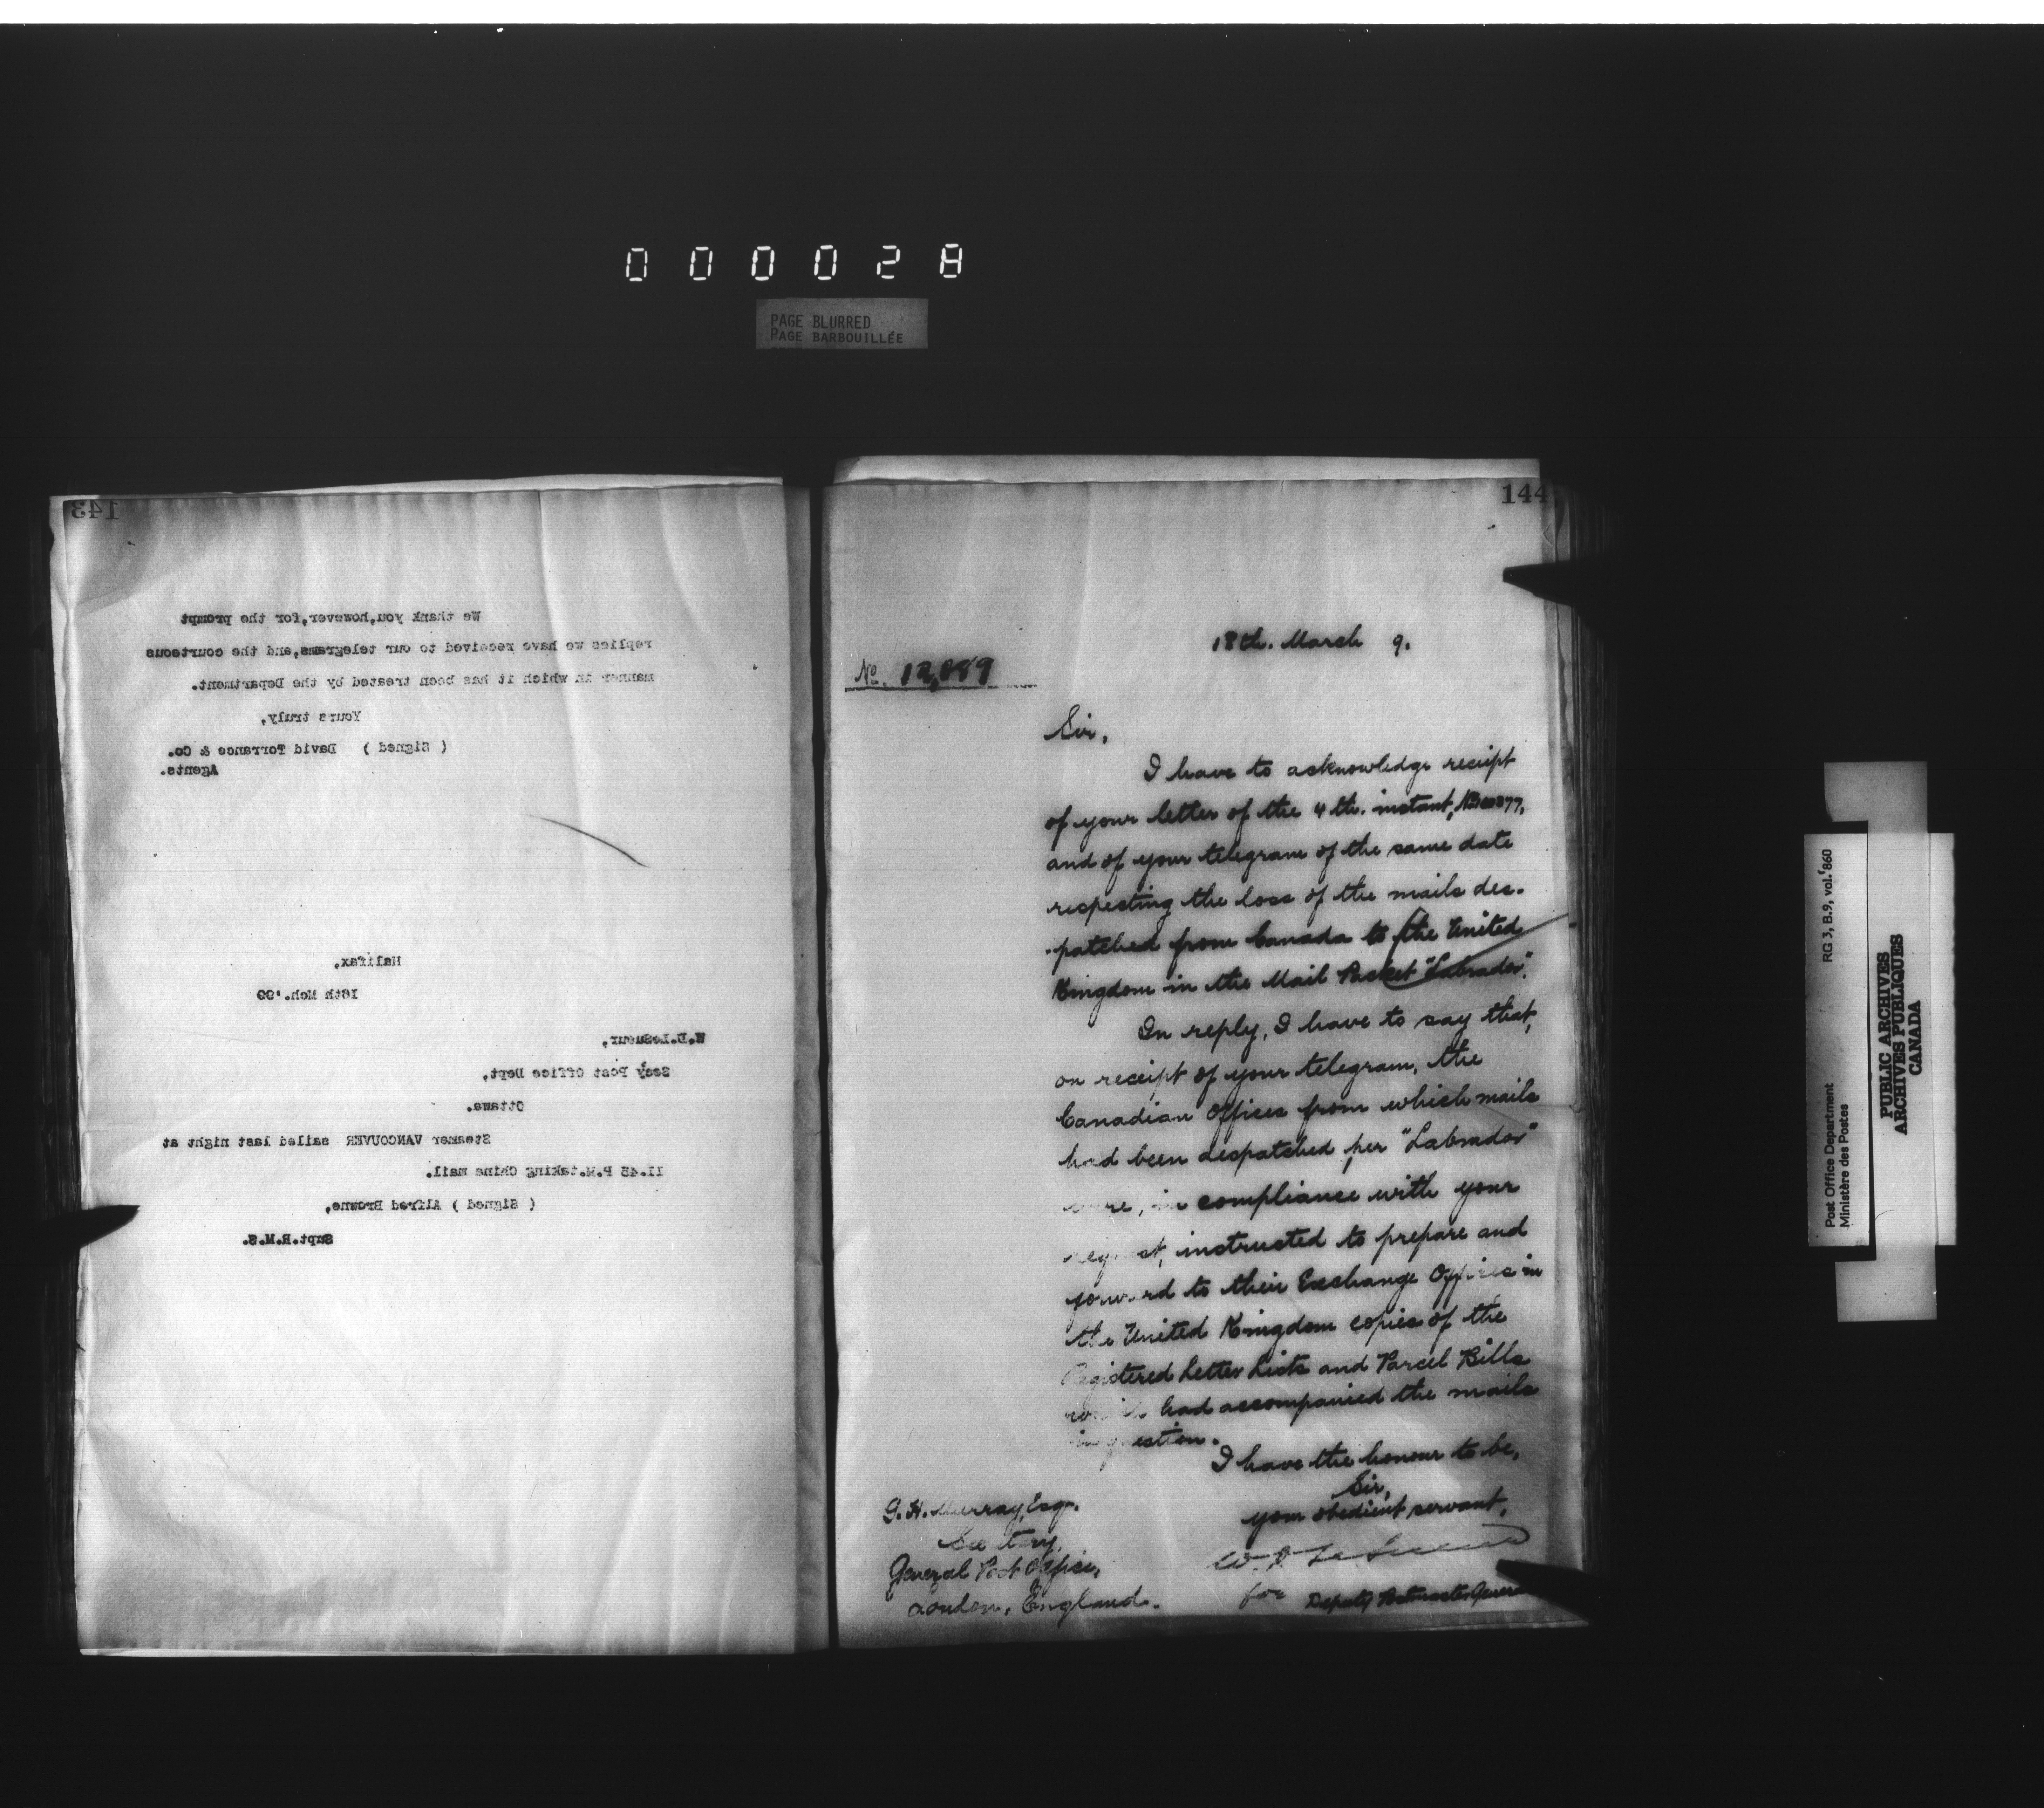 000028
PAGE BLURRED
PAGE BARBOUILLÉE
143
We thank you, however, for the prompt
replies we have received to our telegrams, and the courteous
manner in which it has been treated by the Department.
Yours truly,
( Signed ) David Torrance & Co.
Agents.
Halifax,
18th Mch.'99
W.D.LeSueur,
Secy Post Office Dept,
Ottawa.
Steamer VANCOUVER sailed last night at
11.45 P.M.taking China mail.
( Signed ) Alfred Browne,
Supt.R.M.S.
144
18th. March 9.
No. 12,889
Sir,
I have to acknowledge receipt
of your letter of the 4th. instant,
and of your telegram of the same date
respecting the loss of the mails des-
patched from Canada to the United
Kingdom in the Mail Packet "Labrador".
In reply, I have to say that,
on receipt of your telegram, the
Canadian Offices from which mails
had been despatched per "Labrador"
were, in compliance with your
request, instructed to prepare and
forward to their Exchange Offices in
the United Kingdom copies of the
Registered Letter Lists and Parcel Bills
which had accompanied the mails
in question.
I have the honour to be,
Sir,
your obedient servant,
W. D. LeSueur
for Deputy Postmaster General
G. H. Murray, Esq.
Secretary,
General Post Office,
London, England.
Post Office Department
Ministère des Postes
RG 3, B.9, vol. 860
PUBLIC ARCHIVES
ARCHIVES PUBLIQUES
CANADA